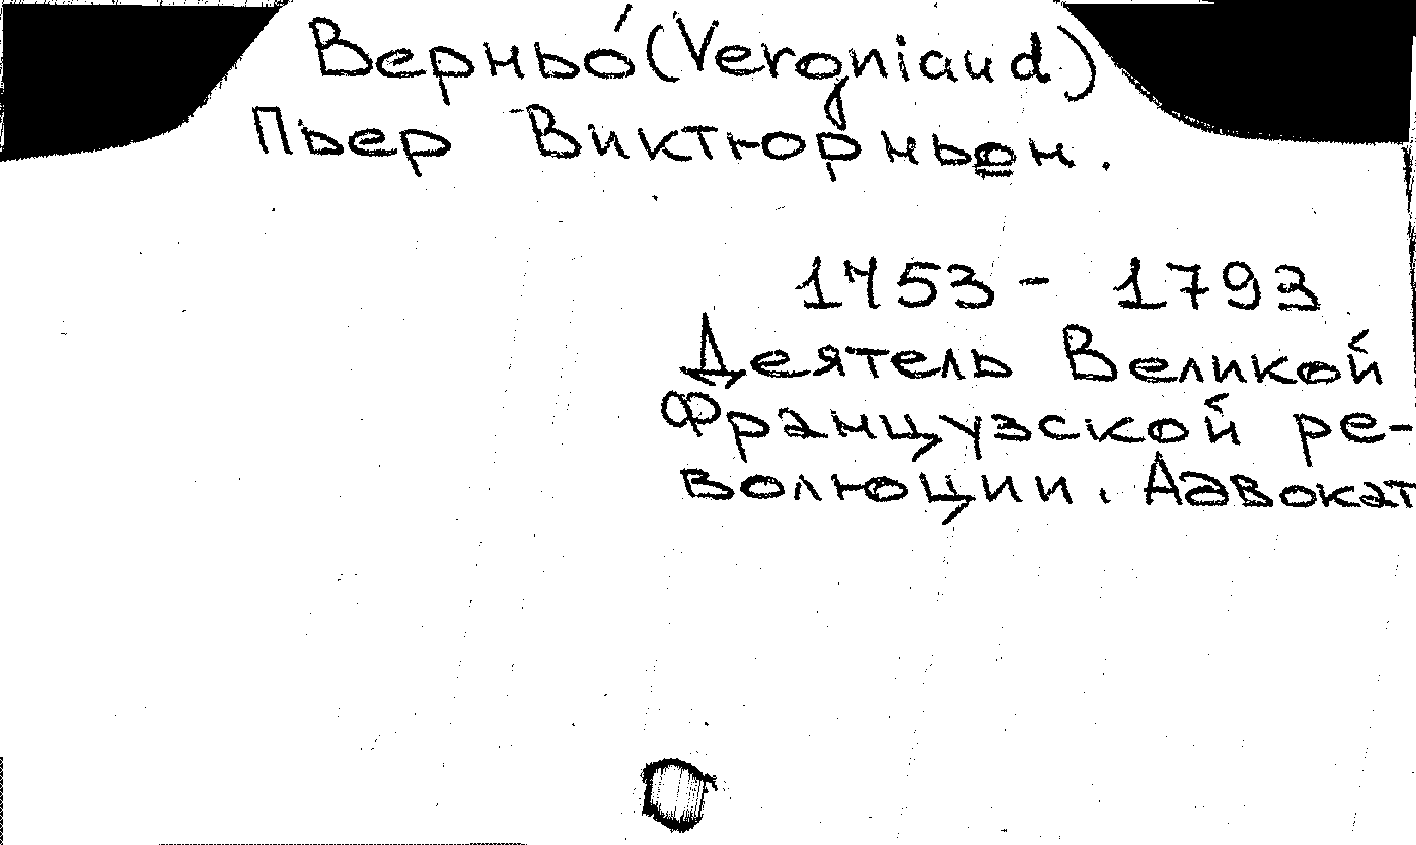 Верньо́ (Vergniaud)
Пьер Виктюрньон.
1753 - 1793
Деятель Великой
Французской ре-
волюции. Адвокат